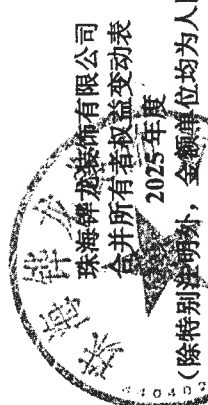 珠海铧龙装饰有限公司
合并所有者权益变动表
2025年度
（除特别注明外，金额单位均为人
珠海铧龙